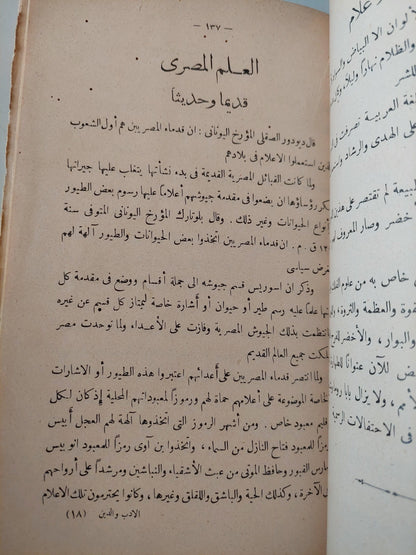 — ١٣٧ —
العلم المصرى
قديما وحديثا
قال ديودور الصقلى المؤرخ اليونانى : ان قدماء المصريين هم أول الشعوب
الذين استعملوا الاعلام فى بلادهم
ولما كانت القبائل المصرية القديمة فى بدء نشأتها يتغلب عليها جيرانها
رؤساؤها ان يضعوا فى مقدمة جيوشهم أعلاما عليها رسوم بعض الطيور
أنواع الحيوانات وغير ذلك . وقال بلوتارك المؤرخ اليونانى المتوفى سنة
ق . م . ان قدماء المصريين اتخذوا بعض الحيوانات والطيور آلهة لهم
غرض سياسى
وذكر ان اسوريس قسم جيوشه الى جملة أقسام ووضع فى مقدمة كل
منها علما عليه رسم طير أو حيوان أو أشارة خاصة ليمتاز كل قسم عن غيره
انتظمت بذلك الجيوش المصرية وفازت على الأعداء . ولما توحدت مصر
ملكت جميع العالم القديم
ولما انتصر قدماء المصريين على أعدائهم اعتبروا هذه الطيور أو الاشارات
الخاصة الموضوعة على أعلامهم حماة لهم ورموزاً لمعبوداتهم المحلية إذ كان لكل
اقليم معبود خاص . ومن أشهر الرموز التى اتخذوها آلهة لهم العجل أبيس
رمزاً للمعبود فتاح النازل من السماء ، واتخذوا بن آوى رمزاً للمعبود انوبيس
حارس القبور وحافظ الموتى من عبث الأشقياء والنباشين ومرشداً على أرواحهم
فى الآخرة ، وكذلك الحية والباشق واللقلق وغيرها ، وكانوا يحترمون تلك الاعلام
الادب والدين (١٨)
علام
لوان الا البياض و
والظلام نهاراً وليلا
للشر
العربية تصرفت
على الهدى والرشاد و
لطبيعة لم تقتصر على هذه
خضر وصار المعروف
خاص به من علوم
القوة والعظمة والثروة ،
والبوار ، والأخضر
للآن عنواناً
مم ، ولا يزال بابا
فى الاحتفالات